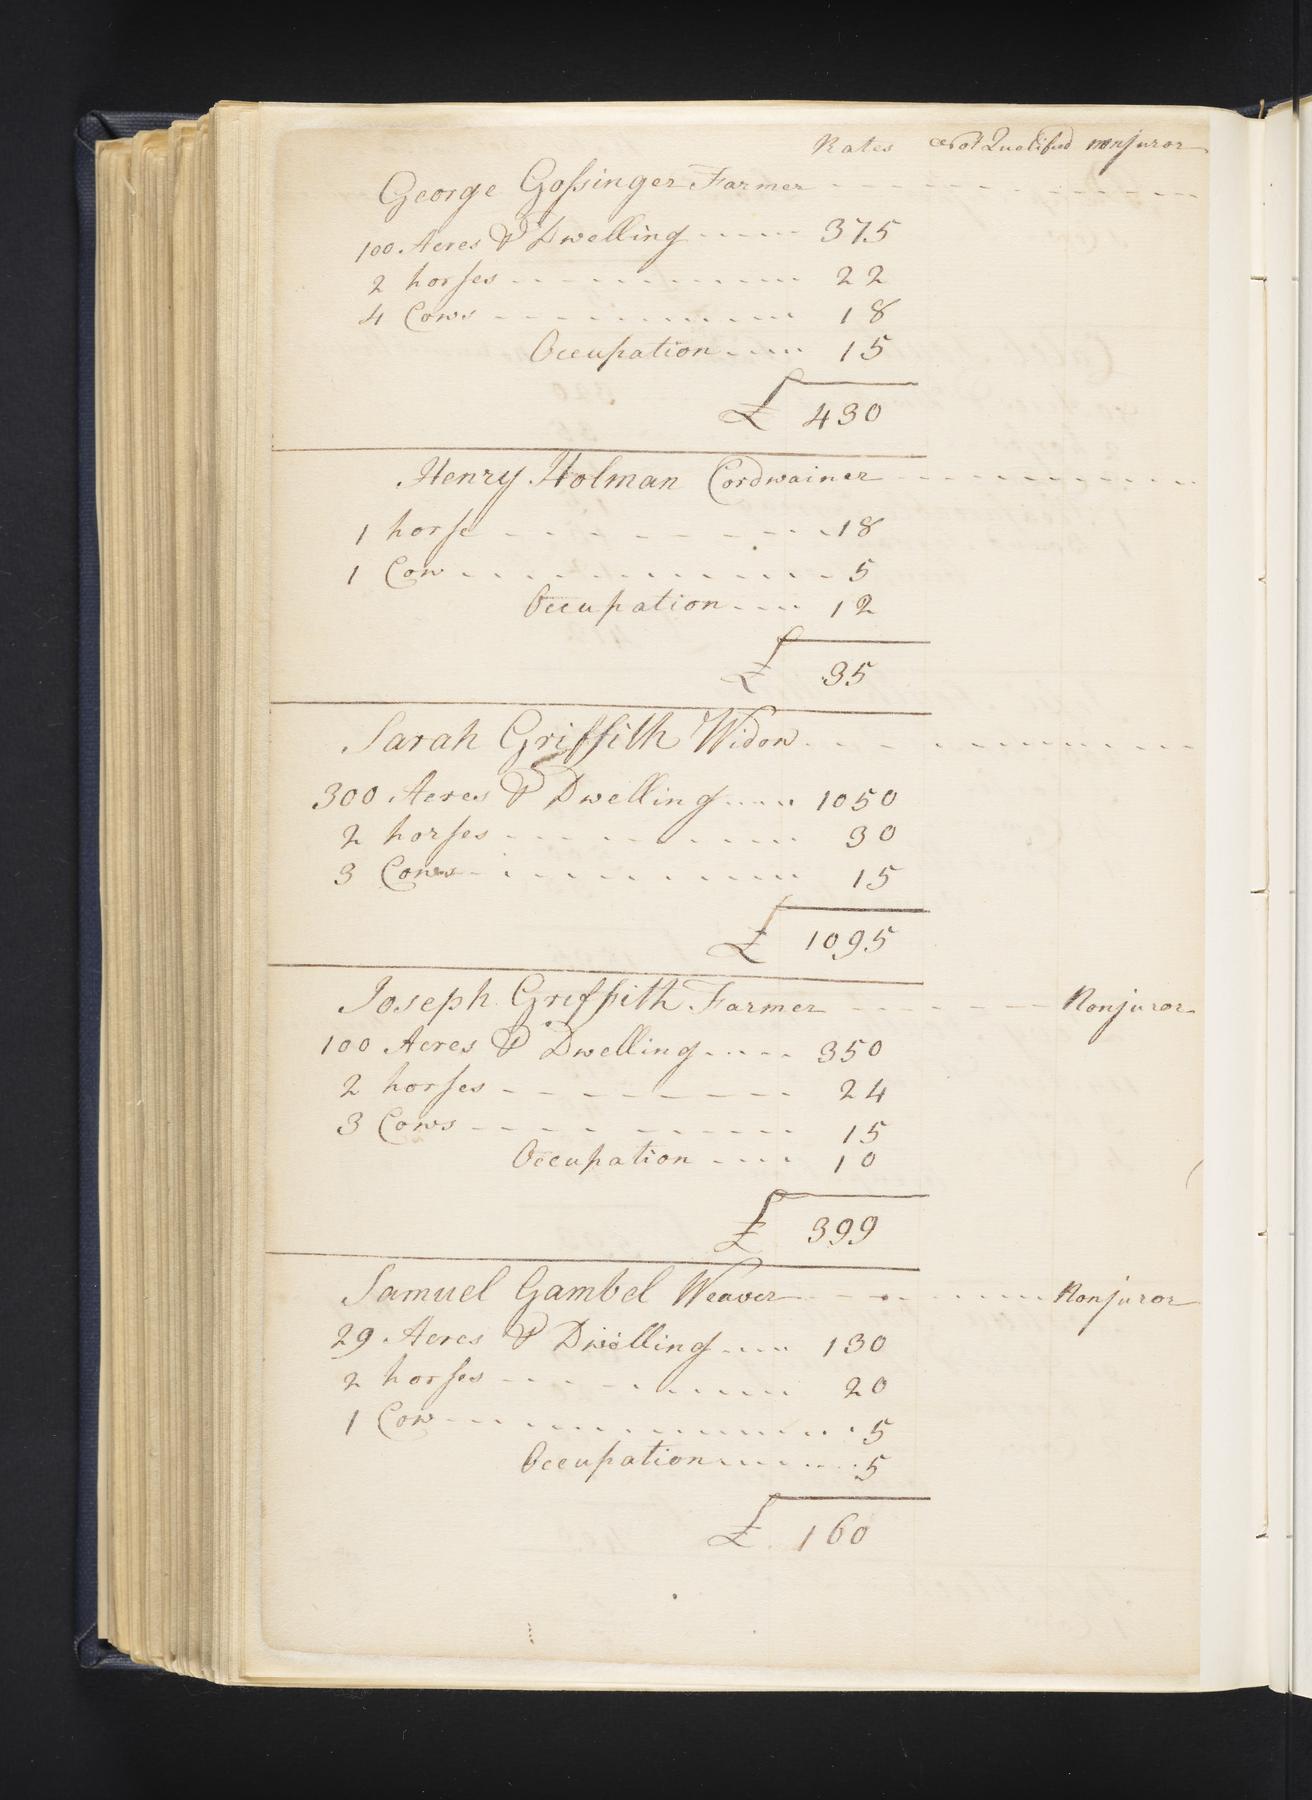 Rates Not Qualified nonjuror
George Gossinger Farmer
100 Acres & Dwelling 375
2 horses 22
4 Cows 18
Occupation 15
£ 430
Henry Holman Cordwainer
1 horse 18
1 Cow 5
Occupation 12
£ 35
Sarah Griffith Widow
300 Acres & Dwelling 1050
2 horses 30
3 Cows 15
£ 1095
Joseph Griffith Farmer Nonjuror
100 Acres & Dwelling 350
2 horses 24
3 Cows 15
Occupation 10
£ 399
Samuel Gambel Weaver Nonjuror
29 Acres & Dwelling 130
2 horses 20
1 Cow 5
Occupation 5
£ 160